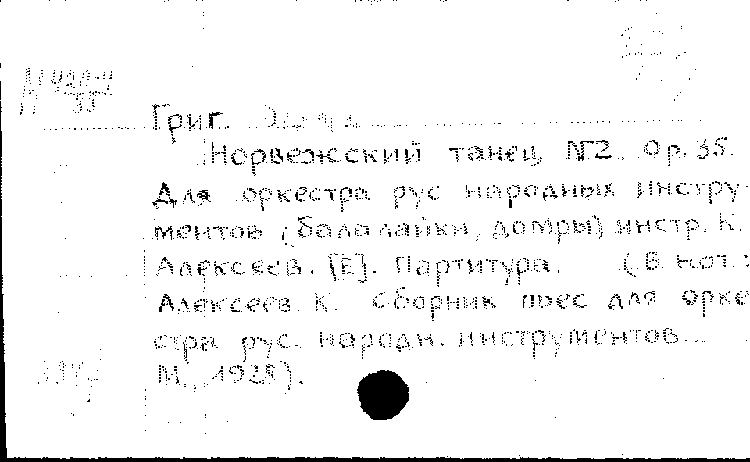 Григ.
Норвежский танец №2. Op. 35.
Для оркестра рус народных инстру-
ментов (балалайки, домры) инстр. К.
Алексеев. [Е]. Партитура. (В нот.:
Алексеев К. Сборник пьес для орке-
стра рус. народн. инструментов...
М., 1928).